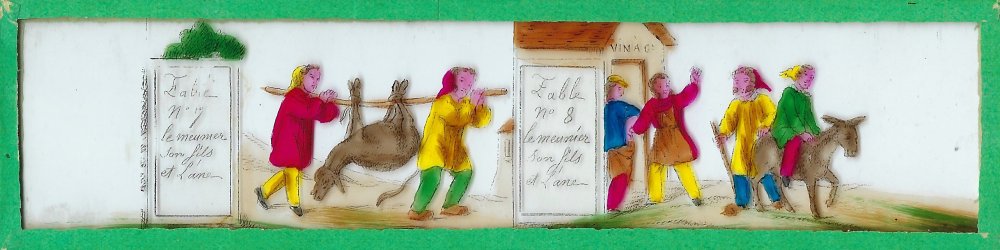 Fable
N° 7
le meunier
son fils
et L'ane
VINAG
Fable
N° 8
le meunier
son fils
et L'ane